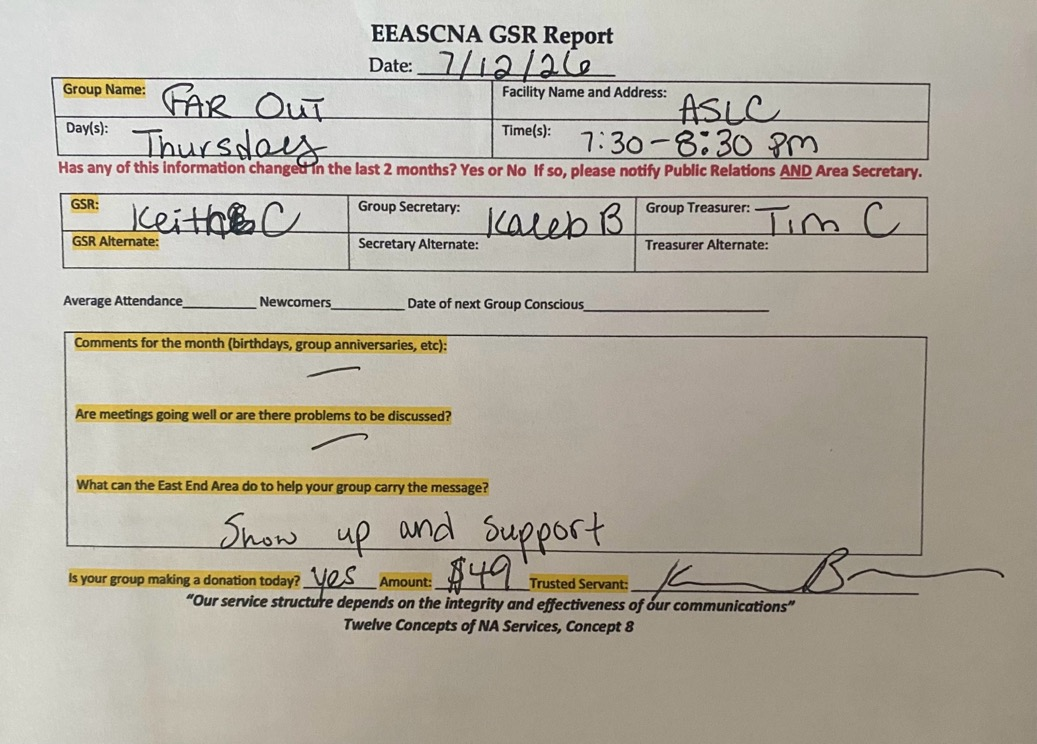 EEASCNA GSR Report
Date: 7/12/26
Group Name: FAR OUT
Facility Name and Address: ASLC
Day(s): Thursday
Time(s): 7:30-8:30 pm
Has any of this information changed in the last 2 months? Yes or No If so, please notify Public Relations AND Area Secretary.
GSR: Keith C
Group Secretary: Kaleb B
Group Treasurer: Tim C
GSR Alternate:
Secretary Alternate:
Treasurer Alternate:
Average Attendance Newcomers Date of next Group Conscious
Comments for the month (birthdays, group anniversaries, etc):
—
Are meetings going well or are there problems to be discussed?
—
What can the East End Area do to help your group carry the message?
Show up and support
Is your group making a donation today? yes Amount: $49 Trusted Servant: K B
"Our service structure depends on the integrity and effectiveness of our communications"
Twelve Concepts of NA Services, Concept 8